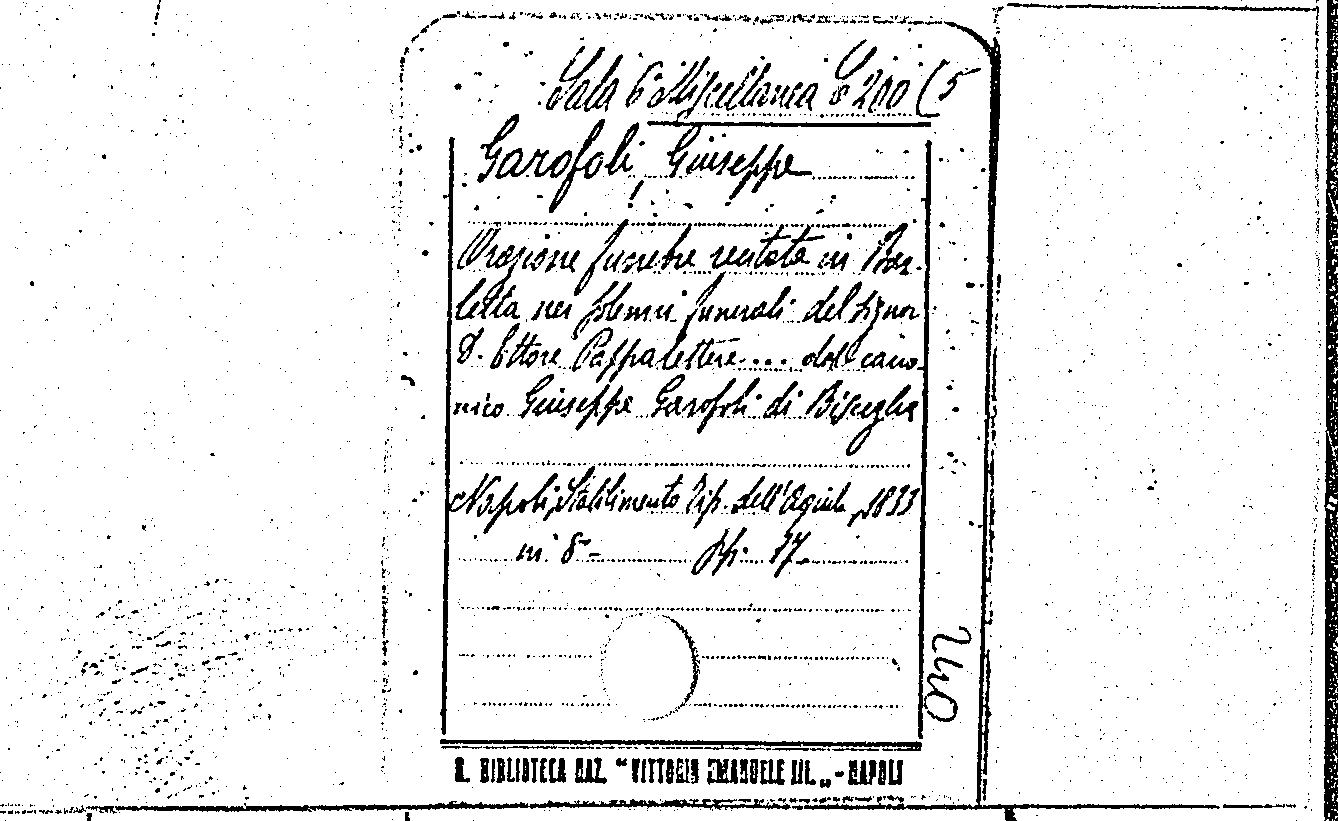 Sala 6 Miscellanea C 200 (5
Garofoli, Giuseppe
Orazione funebre recitata in Bar-
letta nei solenni funerali del signor
D. Ettore Pappalettere.... dal cano-
nico Giuseppe Garofoli di Bisceglie
Napoli, Stabilimento Tip. dell'Aquila, 1833
in 8- pp. 17.
uno
R. BIBLIOTECA NAZ. "VITTORIO EMANUELE III„ - NAPOLI